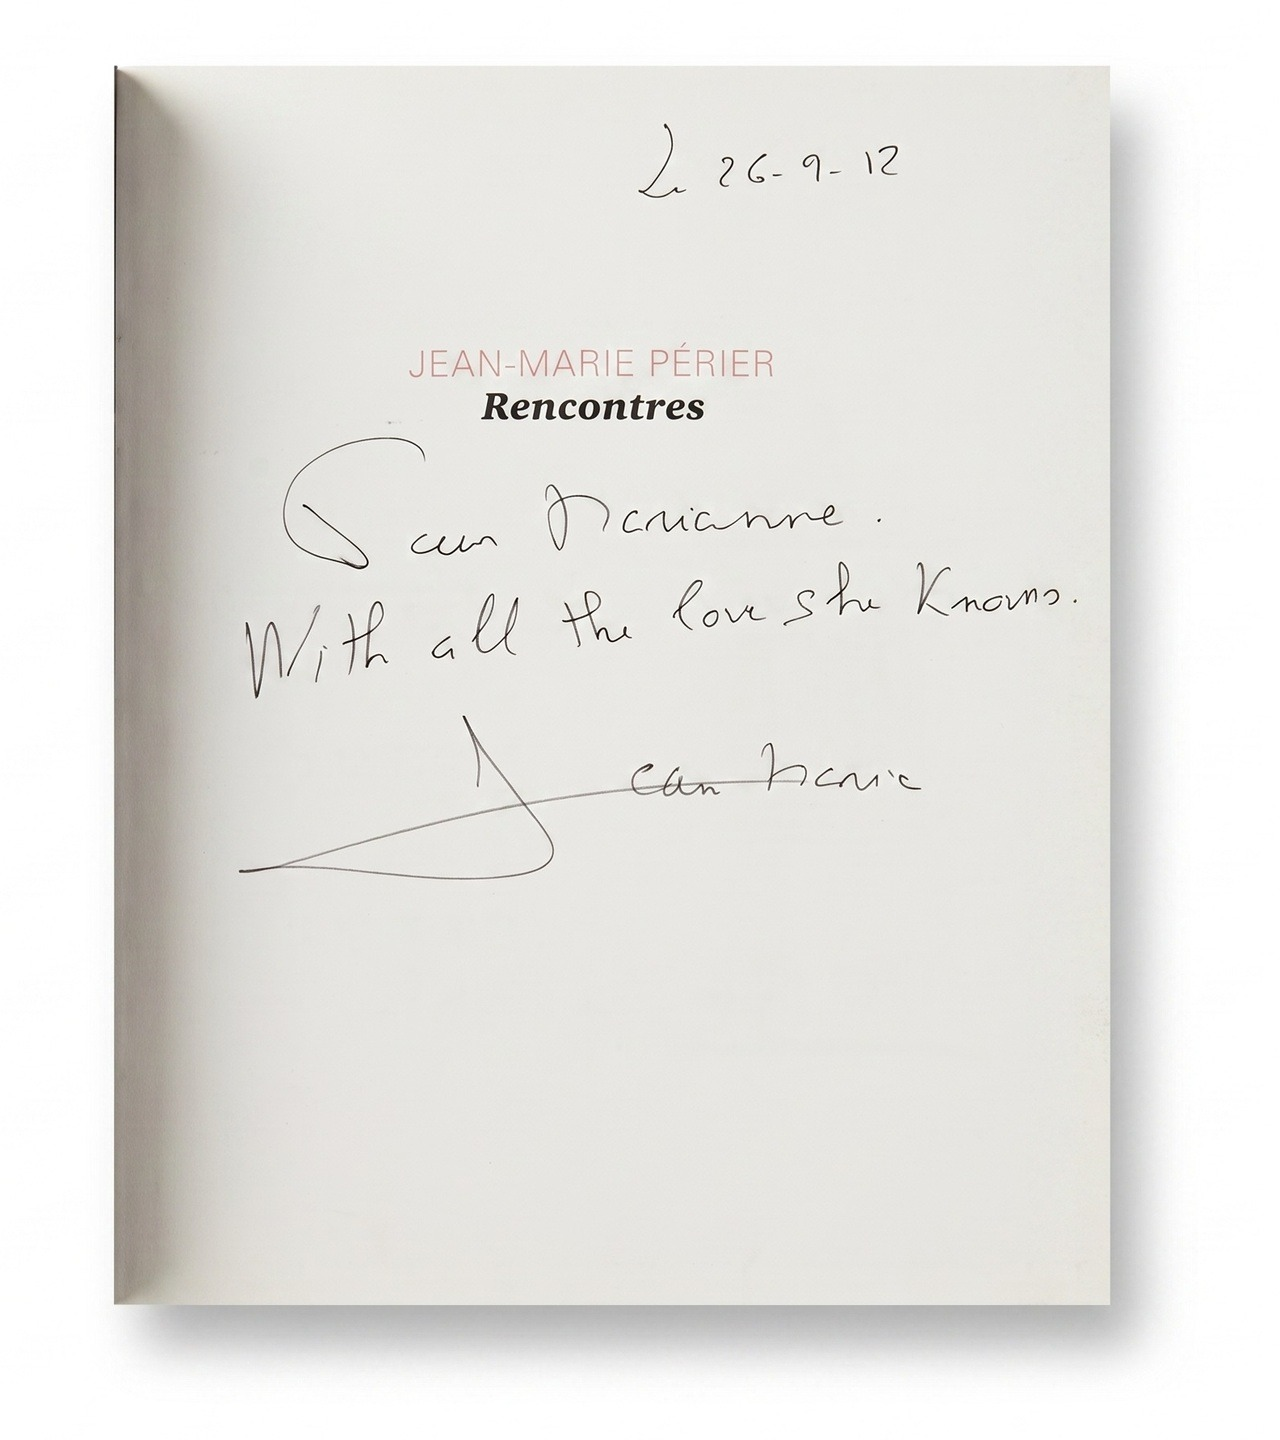 Le 26-9-12
JEAN-MARIE PÉRIER
Rencontres
Pour Marianne.
With all the love she knows.
Jean Marie